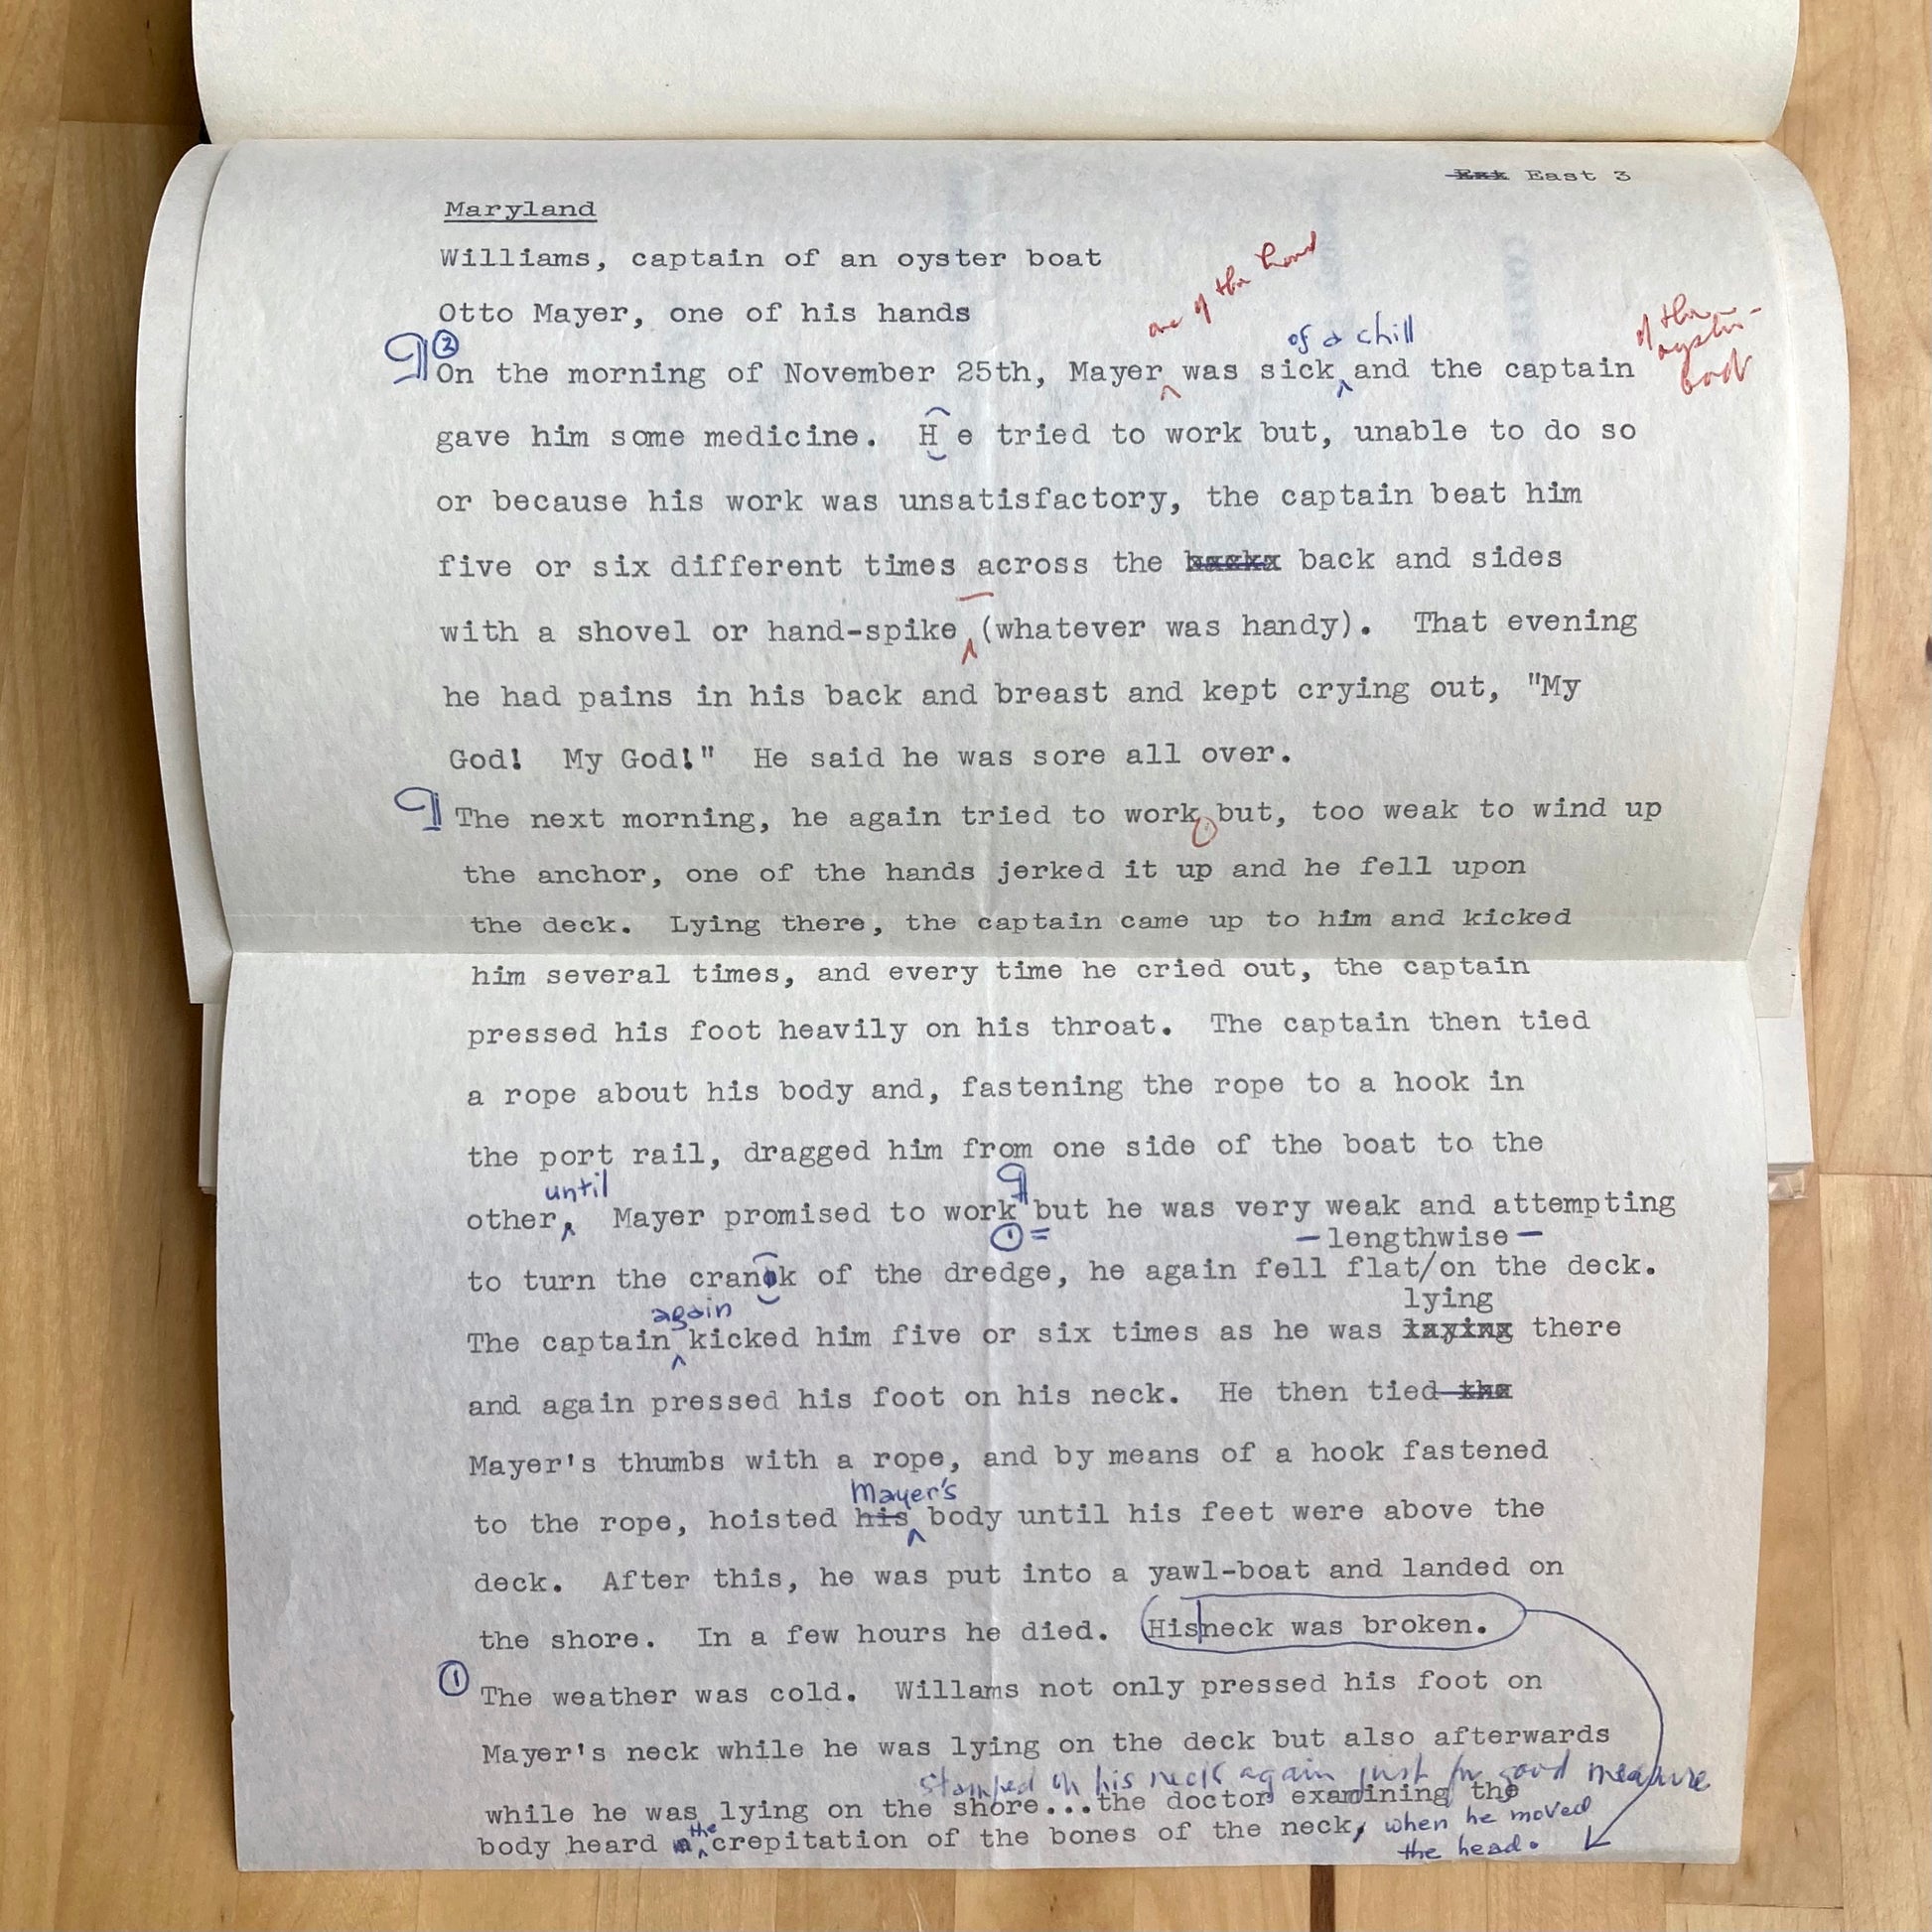 East 3
Maryland
Williams, captain of an oyster boat
one of the hand
Otto Mayer, one of his hands
of the
oyster-
boat
of a chill
¶ ②
On the morning of November 25th, Mayer was sick and the captain
gave him some medicine. H e tried to work but, unable to do so
or because his work was unsatisfactory, the captain beat him
five or six different times across the back and sides
with a shovel or hand-spike (whatever was handy). That evening
he had pains in his back and breast and kept crying out, "My
God! My God!" He said he was sore all over.
¶ The next morning, he again tried to work but, too weak to wind up
the anchor, one of the hands jerked it up and he fell upon
the deck. Lying there, the captain came up to him and kicked
him several times, and every time he cried out, the captain
pressed his foot heavily on his throat. The captain then tied
a rope about his body and, fastening the rope to a hook in
the port rail, dragged him from one side of the boat to the
until ¶
other, Mayer promised to work but he was very weak and attempting
① = - lengthwise -
to turn the crank of the dredge, he again fell flat/on the deck.
again lying
The captain kicked him five or six times as he was laying there
and again pressed his foot on his neck. He then tied the
Mayer's thumbs with a rope, and by means of a hook fastened
Mayer's
to the rope, hoisted his body until his feet were above the
deck. After this, he was put into a yawl-boat and landed on
the shore. In a few hours he died. Hisneck was broken.
① The weather was cold. Willams not only pressed his foot on
Mayer's neck while he was lying on the deck but also afterwards
stamped on his neck again just for good measure
while he was lying on the shore...the doctor examining the
body heard the crepitation of the bones of the neck, when he moved
the head.